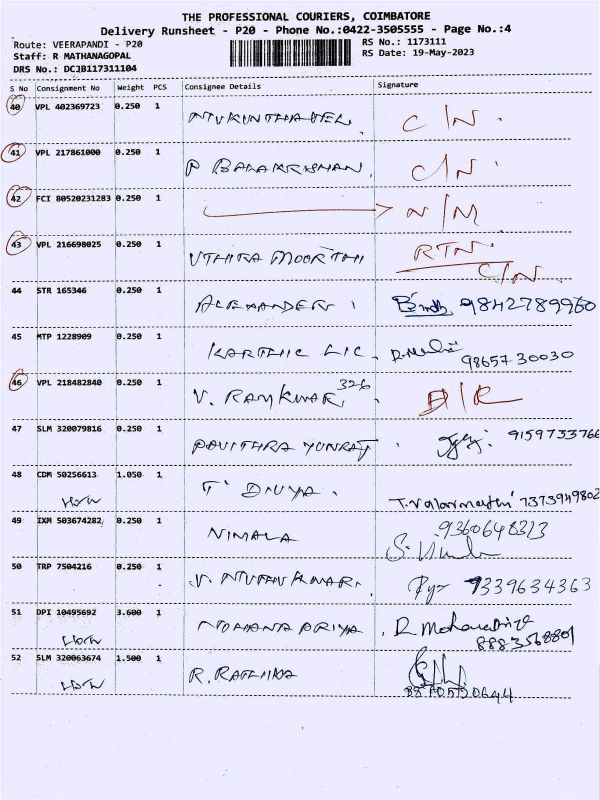 THE PROFESSIONAL COURIERS, COIMBATORE
Delivery Runsheet - P20 - Phone No.:0422-3505555 - Page No.:4
Route: VEERAPANDI - P20 RS No.: 1173111
Staff: R MATHANAGOPAL RS Date: 19-May-2023
DRS No.: DCJB117311104
S No Consignment No Weight PCS Consignee Details Signature
40 VPL 402369723 0.250 1 C/N.
41 VPL 217861000 0.250 1 P BALAKRISHNAN. C/N.
42 FCI 80520231283 0.250 1 N/M
43 VPL 216698025 0.250 1 UTHIRA MOORTHI RTN
C/N.
44 STR 165346 0.250 1 ALEXANDER 9842789960
45 MTP 1228909 0.250 1 KARTHIC LIC.
9865730030
46 VPL 218482840 0.250 1 V. RAMKUMAR. 326 D/R
47 SLM 320079816 0.250 1 PAVITHRA YUVRAJ 9159733766
48 CDM 50256613 1.050 1 T DIVYA. T. Valarmathi 7373949802
49 IXM 503674282 0.250 1 NIMALA 9360648313
50 TRP 7504216 0.250 1 V. MUTHUKUMAR. 9339634363
51 DPI 10495692 3.600 1 MOHANA PRIYA.
8883568801
52 SLM 320063674 1.500 1 R. RATHIKA